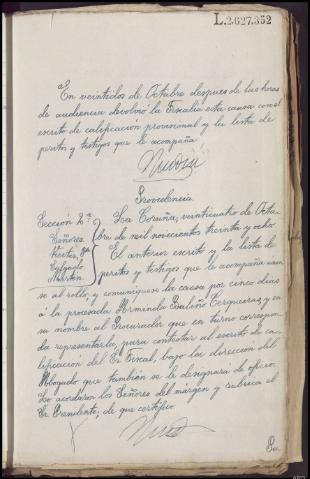 L.2.627.352
En veintidos de Octubre despues de las horas
de audiencia devolvió la Fiscalía esta causa con el
escrito de calificación provisional y la lista de
peritos y testigos que le acompaña.
Providencia
Sección 2ª
Señores
La Coruña, veinticuatro de Octu-
bre de mil novecientos treinta y ocho
El anterior escrito y la lista de
peritos y testigos que le acompaña unan
se al rollo y comuníquese la causa por cinco dias
a la procesada Arminda Baliño Cerqueiras y en
su nombre al Procurador que en turno correspon
da representarla, para contestar al escrito de ca-
lificación del Sr Fiscal, bajo la dirección del
Abogado que tambien se le designará de oficio.
Lo acordaron los Señores del márgen y rubrica el
Sr Presidente, de que certifico.